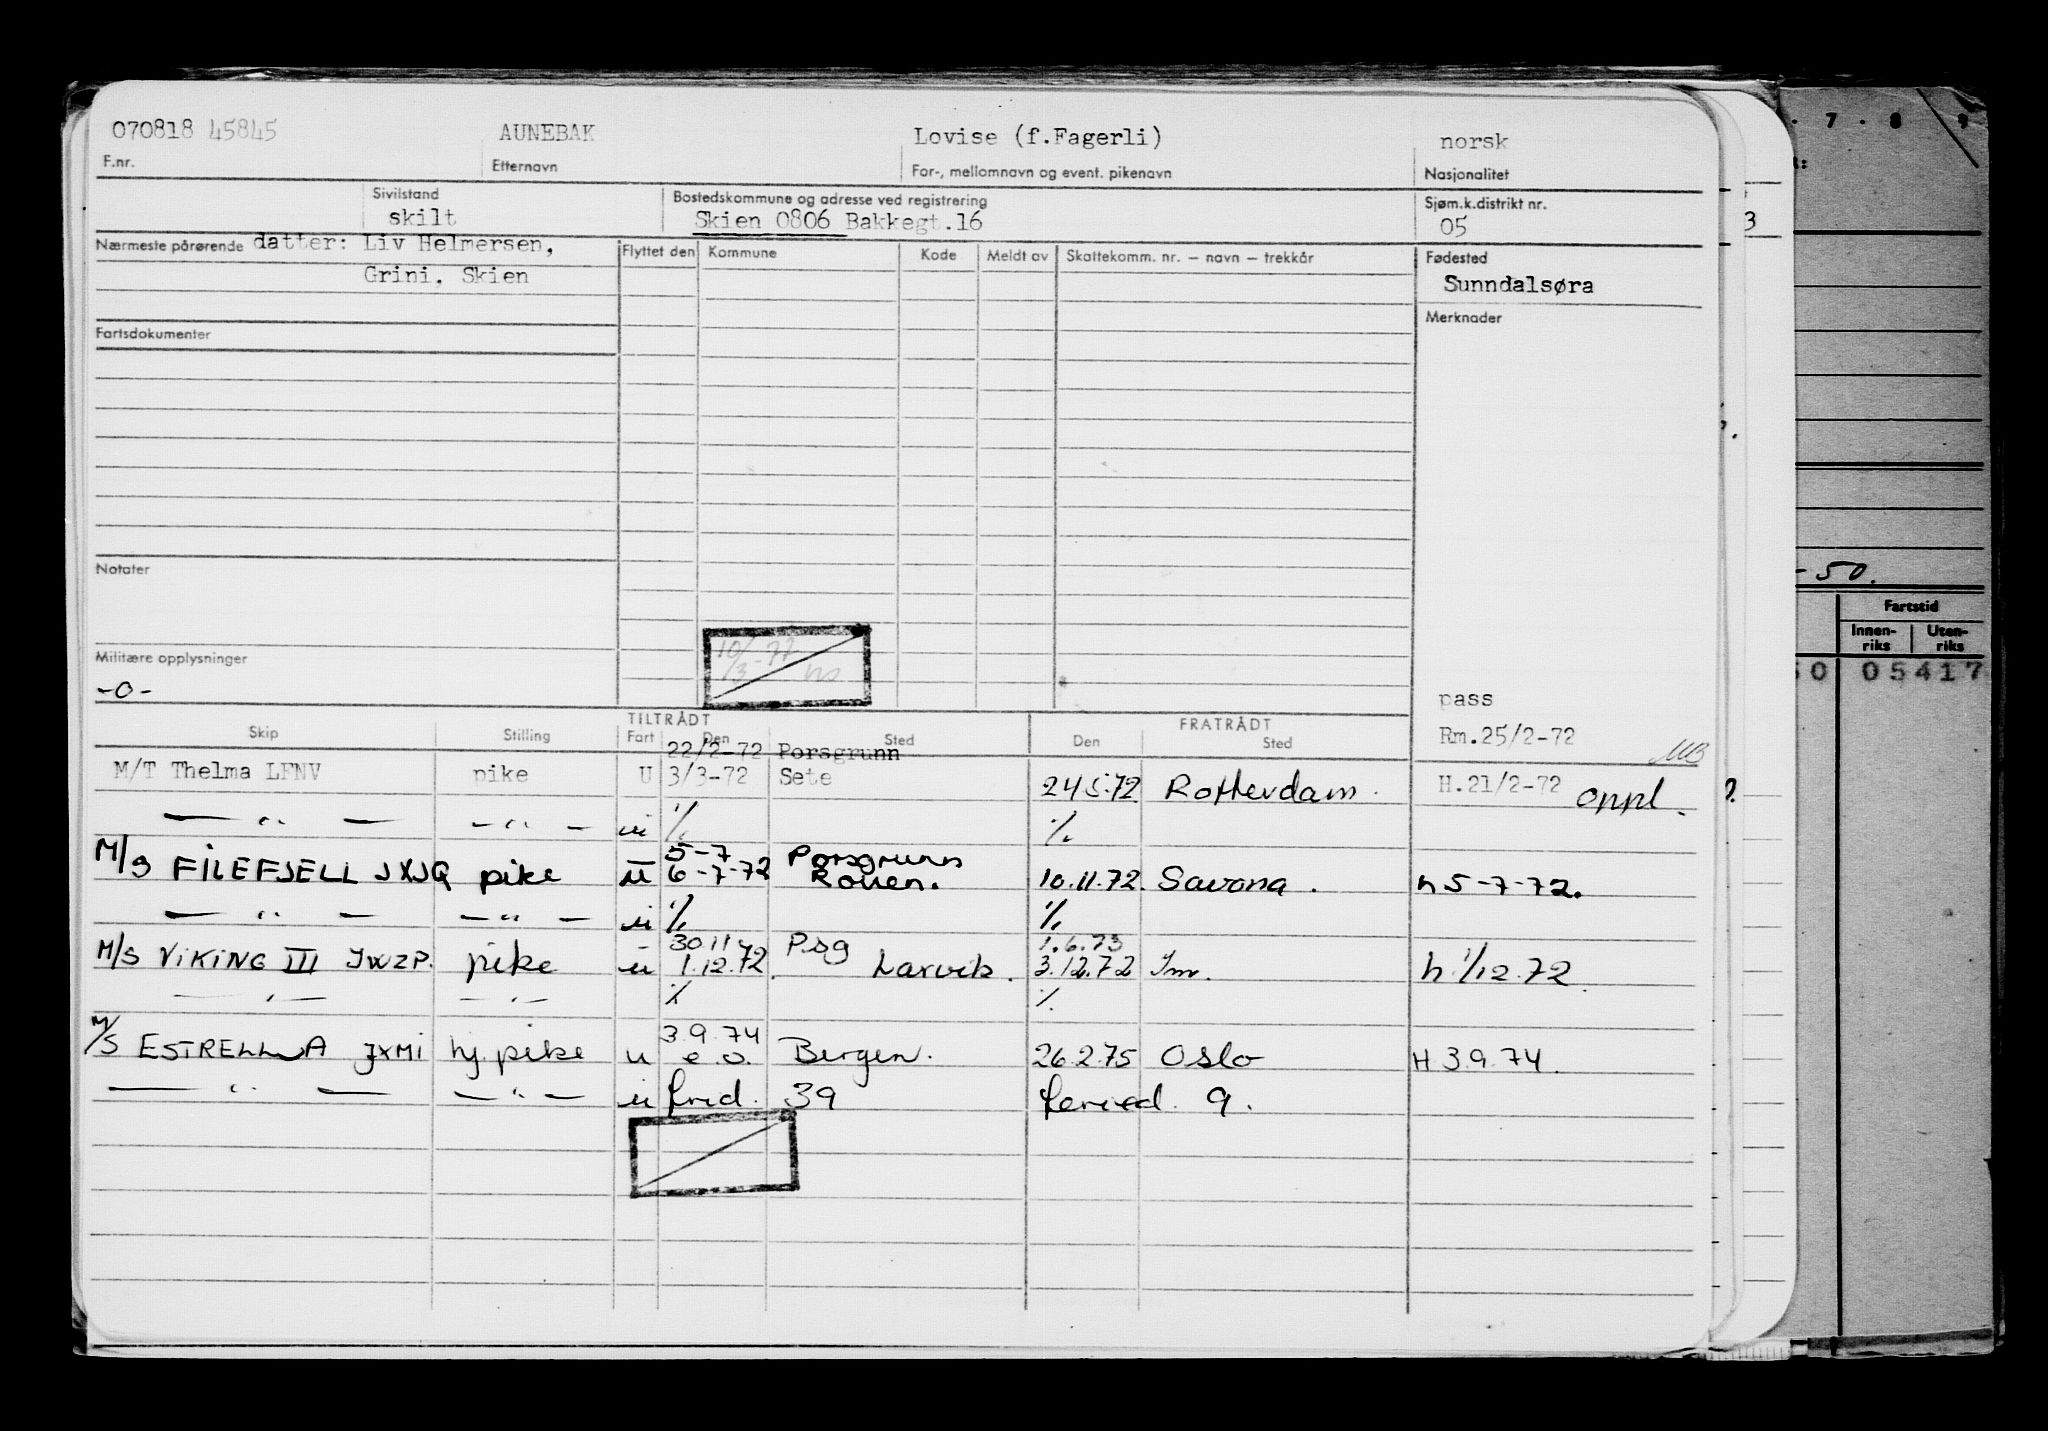 070818 45845 AUNEBAK Lovise (f.Fagerli) norsk
F.nr. Etternavn For-, mellomnavn og event. pikenavn Nasjonalitet
Sivilstand Bostedskommune og adresse ved registrering Sjøm.k.distrikt nr.
skilt Skien 0806 Bakkegt.16 05
Nærmeste pårørende datter: Liv Helmersen, Flyttet den Kommune Kode Meldt av Skattekomm. nr. — navn — trekkår Fødested
Grini, Skien Sunndalsøra
Fartsdokumenter Merknader
Notater
10/3-77
Militære opplysninger
-o-
pass
TILTRÅDT FRATRÅDT
Skip Stilling Fart Den Sted Den Sted Rm.25/2-72
22/2-72 Porsgrunn MB
M/T Thelma LFNV pike U 3/3-72 Sete 24.5.72 Rotterdam. H.21/2-72 oppl.
— " — - " - ü ./. ./.
5-7 Porsgrunn
M/S FILEFJELL JXJQ pike ü 6-7-72 Rouen. 10.11.72 Savona. h 5-7-72.
— " — — " — ü ./. ./.
30.11 Psg 1.6.73
M/S VIKING III JWZP. pike ü 1.12.72. Larvik. 3.12.72 h 1/12.72.
— " — — " — ./. ./.
3.9.74
M/S ESTRELLA JXMI hj. pike u e.o. Bergen. 26.2.75 Oslo H 3.9.74.
— " — — " — ü frid. 39 9.
7 8 9
3
-50.
Fartstid
Innen-riks Uten-riks
50 05417